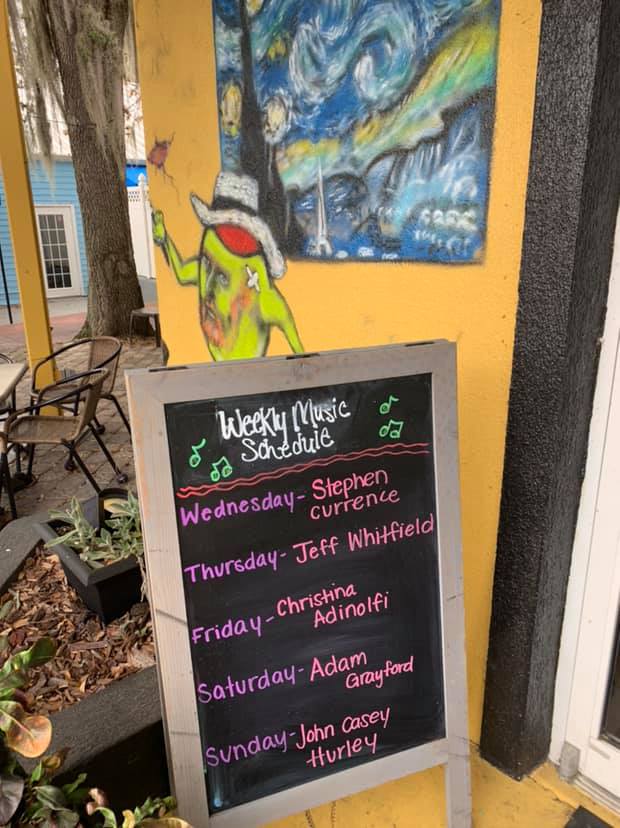 Weekly Music
Schedule
Wednesday- Stephen
currence
Thursday- Jeff Whitfield
Friday- Christina
Adinolfi
Saturday- Adam
Grayford
Sunday- John Casey
Hurley